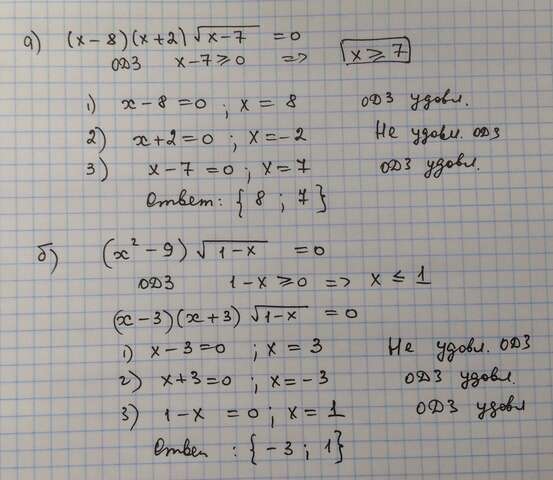 а) (x-8)(x+2)√x-7 = 0
ОДЗ x-7≥0 => x≥7
1) x-8=0 ; x=8 ОДЗ удовл.
2) x+2=0 ; x=-2 Не удовл. ОДЗ
3) x-7=0 ; x=7 ОДЗ удовл.
Ответ: {8 ; 7}
б) (x²-9)√1-x = 0
ОДЗ 1-x≥0 => x≤1
(x-3)(x+3)√1-x = 0
1) x-3=0 ; x=3 Не удовл. ОДЗ
2) x+3=0 ; x=-3 ОДЗ удовл.
3) 1-x=0 ; x=1 ОДЗ удовл
Ответ : {-3 ; 1}